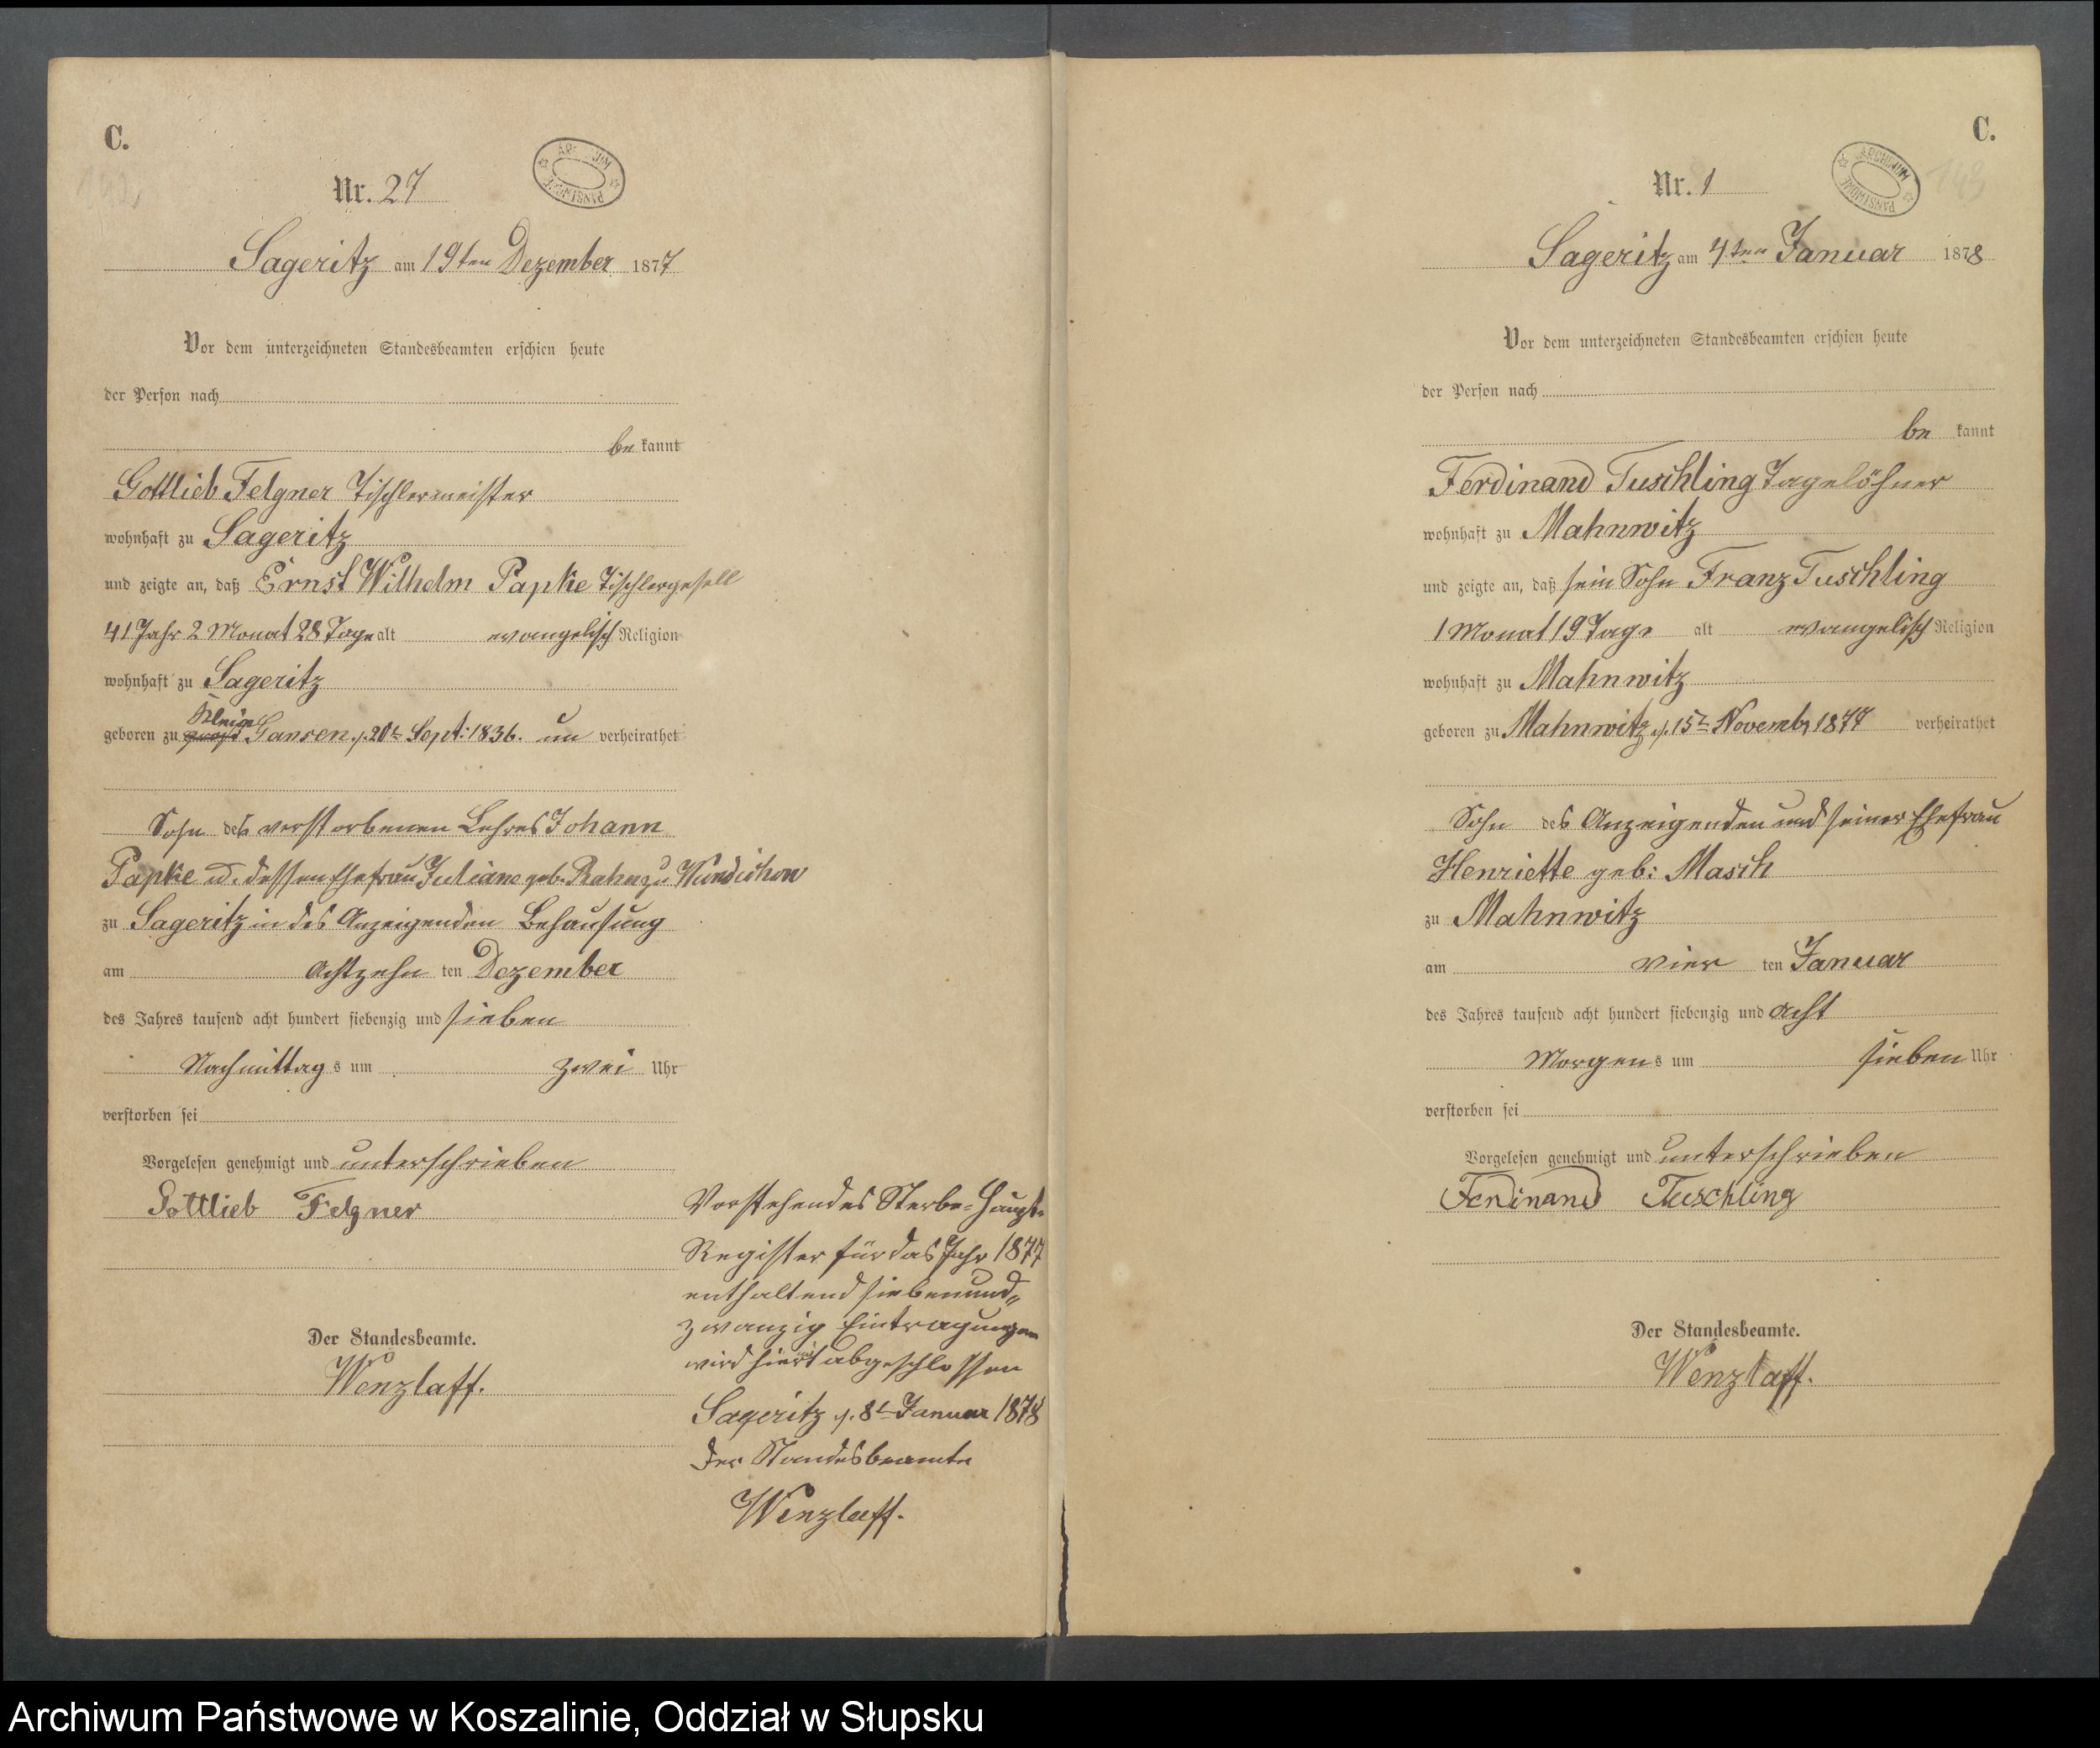 C.
Nr. 27
Sageritz am 19ten Dezember 1877
Vor dem unterzeichneten Standesbeamten erschien heute
der Person nach
be kannt
Gottlieb Felgner Tischlermeister
wohnhaft zu Sageritz
und zeigte an, daß Ernst Wilhelm Papke Tischlergesell
41 Jahr 2 Monat 28 Tage alt evangelisch Religion
wohnhaft zu Sageritz
Klein
geboren zu groß Gansen, d. 20t Sept: 1836. un verheirathet
Sohn des verstorbenen Lehres Johann
Papke u. dessen Ehefrau Juliane geb. Rahn zu Wundichow
zu Sageritz in des Anzeigenden Behausung
am achtzehn ten Dezember
des Jahres tausend acht hundert siebenzig und sieben
Nachmittag s um zwei Uhr
verstorben sei
Vorgelesen genehmigt und unterschrieben
Gottlieb Felgner
Der Standesbeamte.
Wenzlaff.
Vorstehendes Sterbe-Haupt-
Register für das Jahr 1877
enthaltend siebenund„
zwanzig Eintragungen
wird hiermit abgeschlossen
Sageritz d. 8t Januar 1878
Der Standesbeamte
Wenzlaff.
C.
143
Nr. 1
ARCHIWUM PAŃSTWOWE
Sageritz am 4ten Januar 1878
Vor dem unterzeichneten Standesbeamten erschien heute
der Person nach
be kannt
Ferdinand Tuschling Tagelöhner
wohnhaft zu Mahnwitz
und zeigte an, daß sein Sohn Franz Tuschling
1 Monat 19 Tage alt evangelisch Religion
wohnhaft zu Mahnwitz
geboren zu Mahnwitz d. 15t Novembr 1877 verheirathet
Sohn des Anzeigenden und seiner Ehefrau
Henriette geb: Masch
zu Mahnwitz
am vier ten Januar
des Jahres tausend acht hundert siebenzig und acht
Morgen s um sieben Uhr
verstorben sei
Vorgelesen genehmigt und unterschrieben
Ferdinand Tuschling
Der Standesbeamte.
Wenzlaff.
Archiwum Państwowe w Koszalinie, Oddział w Słupsku